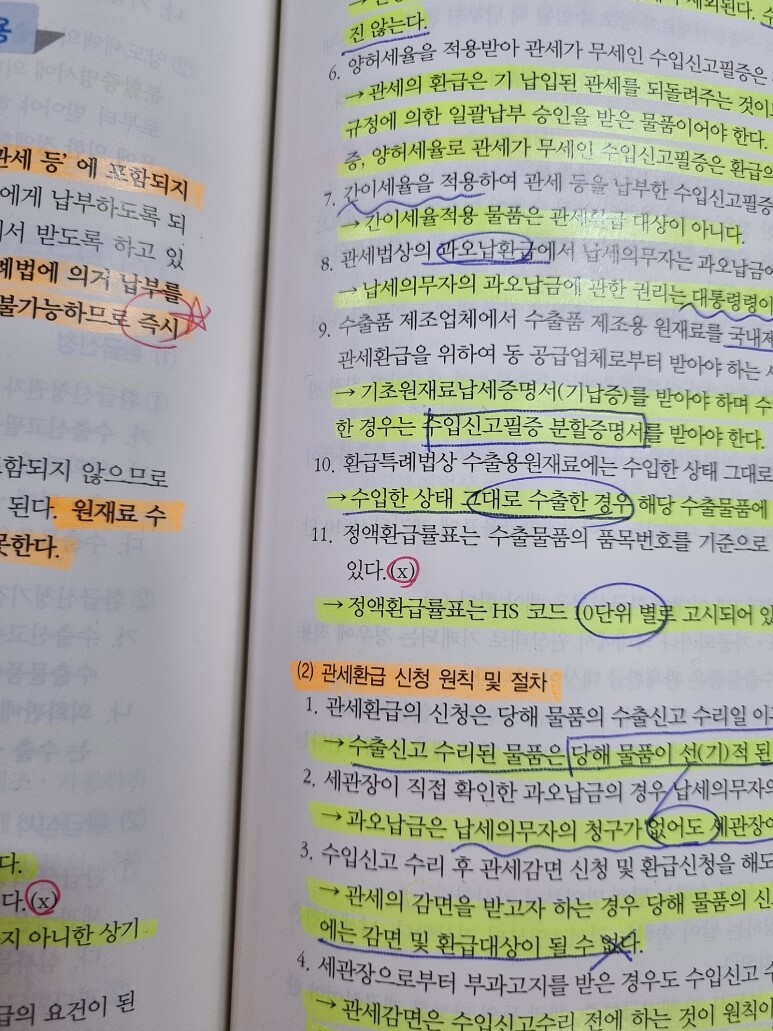 용
관세 등’ 에 포함되지
에게 납부하도록 되
서 받도록 하고 있
례법에 의거 납부를
불가능하므로 즉시
포함되지 않으므로
된다. 원재료 수
못한다.
다.
다.(x)
지 아니한 상기
급의 요건이 된
제외된다. 수
진 않는다.
6. 양허세율을 적용받아 관세가 무세인 수입신고필증은
→ 관세의 환급은 기 납입된 관세를 되돌려주는 것이
규정에 의한 일괄납부 승인을 받은 물품이어야 한다.
증, 양허세율로 관세가 무세인 수입신고필증은 환급의
7. 간이세율을 적용하여 관세 등을 납부한 수입신고필증
→ 간이세율적용 물품은 관세환급 대상이 아니다.
8. 관세법상의 과오납환급에서 납세의무자는 과오납금에
→ 납세의무자의 과오납금에 관한 권리는 대통령령이
9. 수출품 제조업체에서 수출품 제조용 원재료를 국내제
관세환급을 위하여 동 공급업체로부터 받아야 하는 서
→ 기초원재료납세증명서(기납증)를 받아야 하며 수
한 경우는 수입신고필증 분할증명서를 받아야 한다.
10. 환급특례법상 수출용원재료에는 수입한 상태 그대로
→ 수입한 상태 그대로 수출한 경우 해당 수출물품에
11. 정액환급률표는 수출물품의 품목번호를 기준으로
있다.(x)
→ 정액환급률표는 HS 코드 10단위 별로 고시되어 있
(2) 관세환급 신청 원칙 및 절차
1. 관세환급의 신청은 당해 물품의 수출신고 수리일 이
→ 수출신고 수리된 물품은 당해 물품이 선(기)적 된
2. 세관장이 직접 확인한 과오납금의 경우 납세의무자의
→ 과오납금은 납세의무자의 청구가 없어도 세관장이
3. 수입신고 수리 후 관세감면 신청 및 환급신청을 해도
→ 관세의 감면을 받고자 하는 경우 당해 물품의 신
에는 감면 및 환급대상이 될 수 없다.
4. 세관장으로부터 부과고지를 받은 경우도 수입신고 수
→ 관세감면은 수입신고수리 전에 하는 것이 원칙이